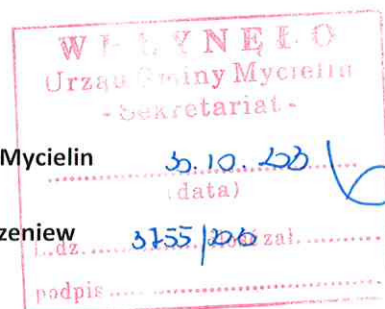 WPŁYNĘŁO
Urząd Gminy Mycielin
- Sekretariat -
Mycielin
30.10.
(data)
zeniew
L.dz. 3755/ zał.
podpis